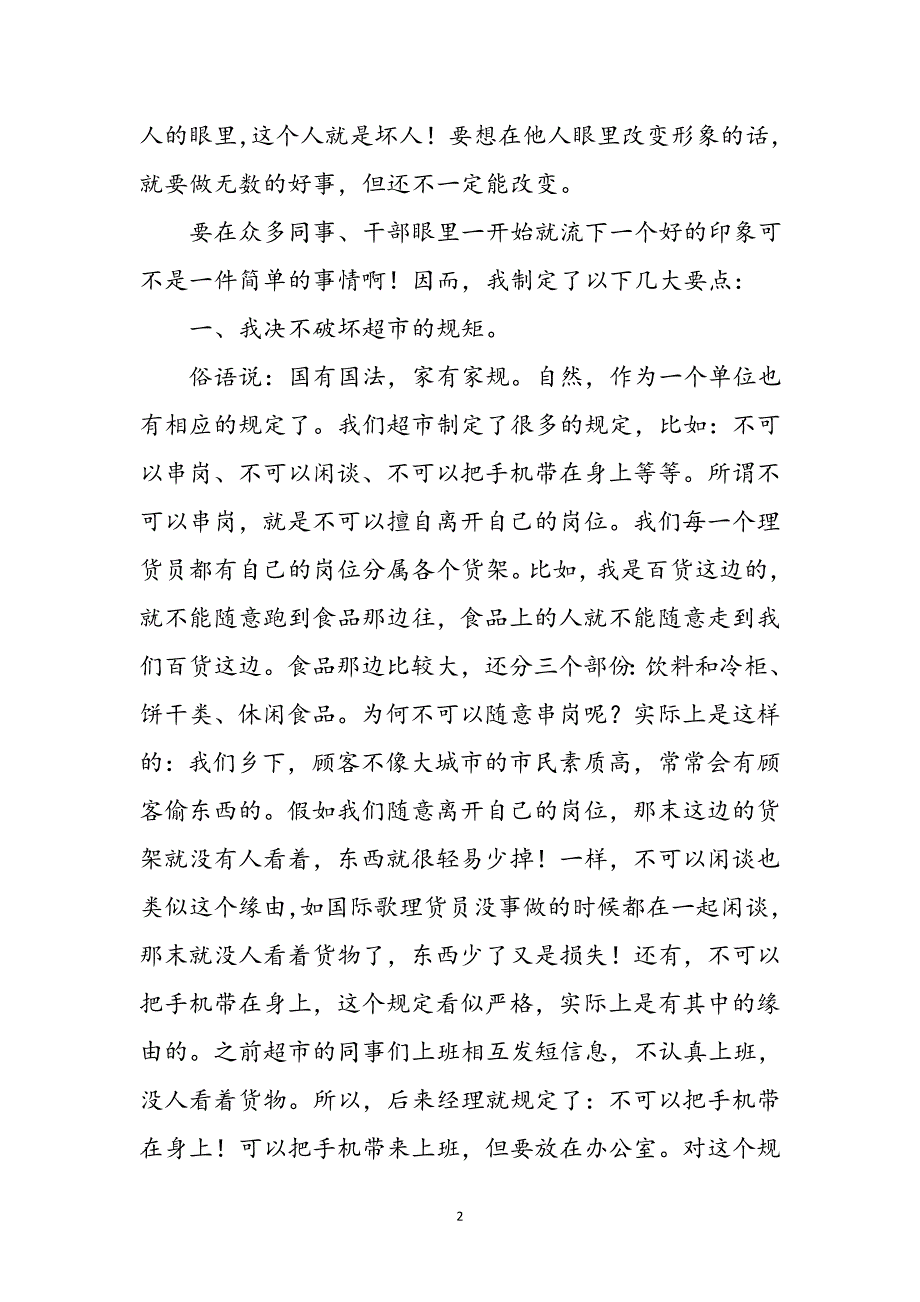 人的眼里,这个人就是坏人！要想在他人眼里改变形象的话，
就要做无数的好事，但还不一定能改变。
要在众多同事、干部眼里一开始就流下一个好的印象可
不是一件简单的事情啊！因而，我制定了以下几大要点：
一、我决不破坏超市的规矩。
俗语说：国有国法，家有家规。自然，作为一个单位也
有相应的规定了。我们超市制定了很多的规定，比如：不可
以串岗、不可以闲谈、不可以把手机带在身上等等。所谓不
可以串岗，就是不可以擅自离开自己的岗位。我们每一个理
货员都有自己的岗位分属各个货架。比如，我是百货这边的，
就不能随意跑到食品那边往，食品上的人就不能随意走到我
们百货这边。食品那边比较大，还分三个部份：饮料和冷柜、
饼干类、休闲食品。为何不可以随意串岗呢？实际上是这样
的：我们乡下，顾客不像大城市的市民素质高，常常会有顾
客偷东西的。假如我们随意离开自己的岗位，那末这边的货
架就没有人看着，东西就很轻易少掉！一样，不可以闲谈也
类似这个缘由,如国际歌理货员没事做的时候都在一起闲谈，
那末就没人看着货物了，东西少了又是损失！还有，不可以
把手机带在身上，这个规定看似严格，实际上是有其中的缘
由的。之前超市的同事们上班相互发短信息，不认真上班，
没人看着货物。所以，后来经理就规定了：不可以把手机带
在身上！可以把手机带来上班，但要放在办公室。对这个规
2